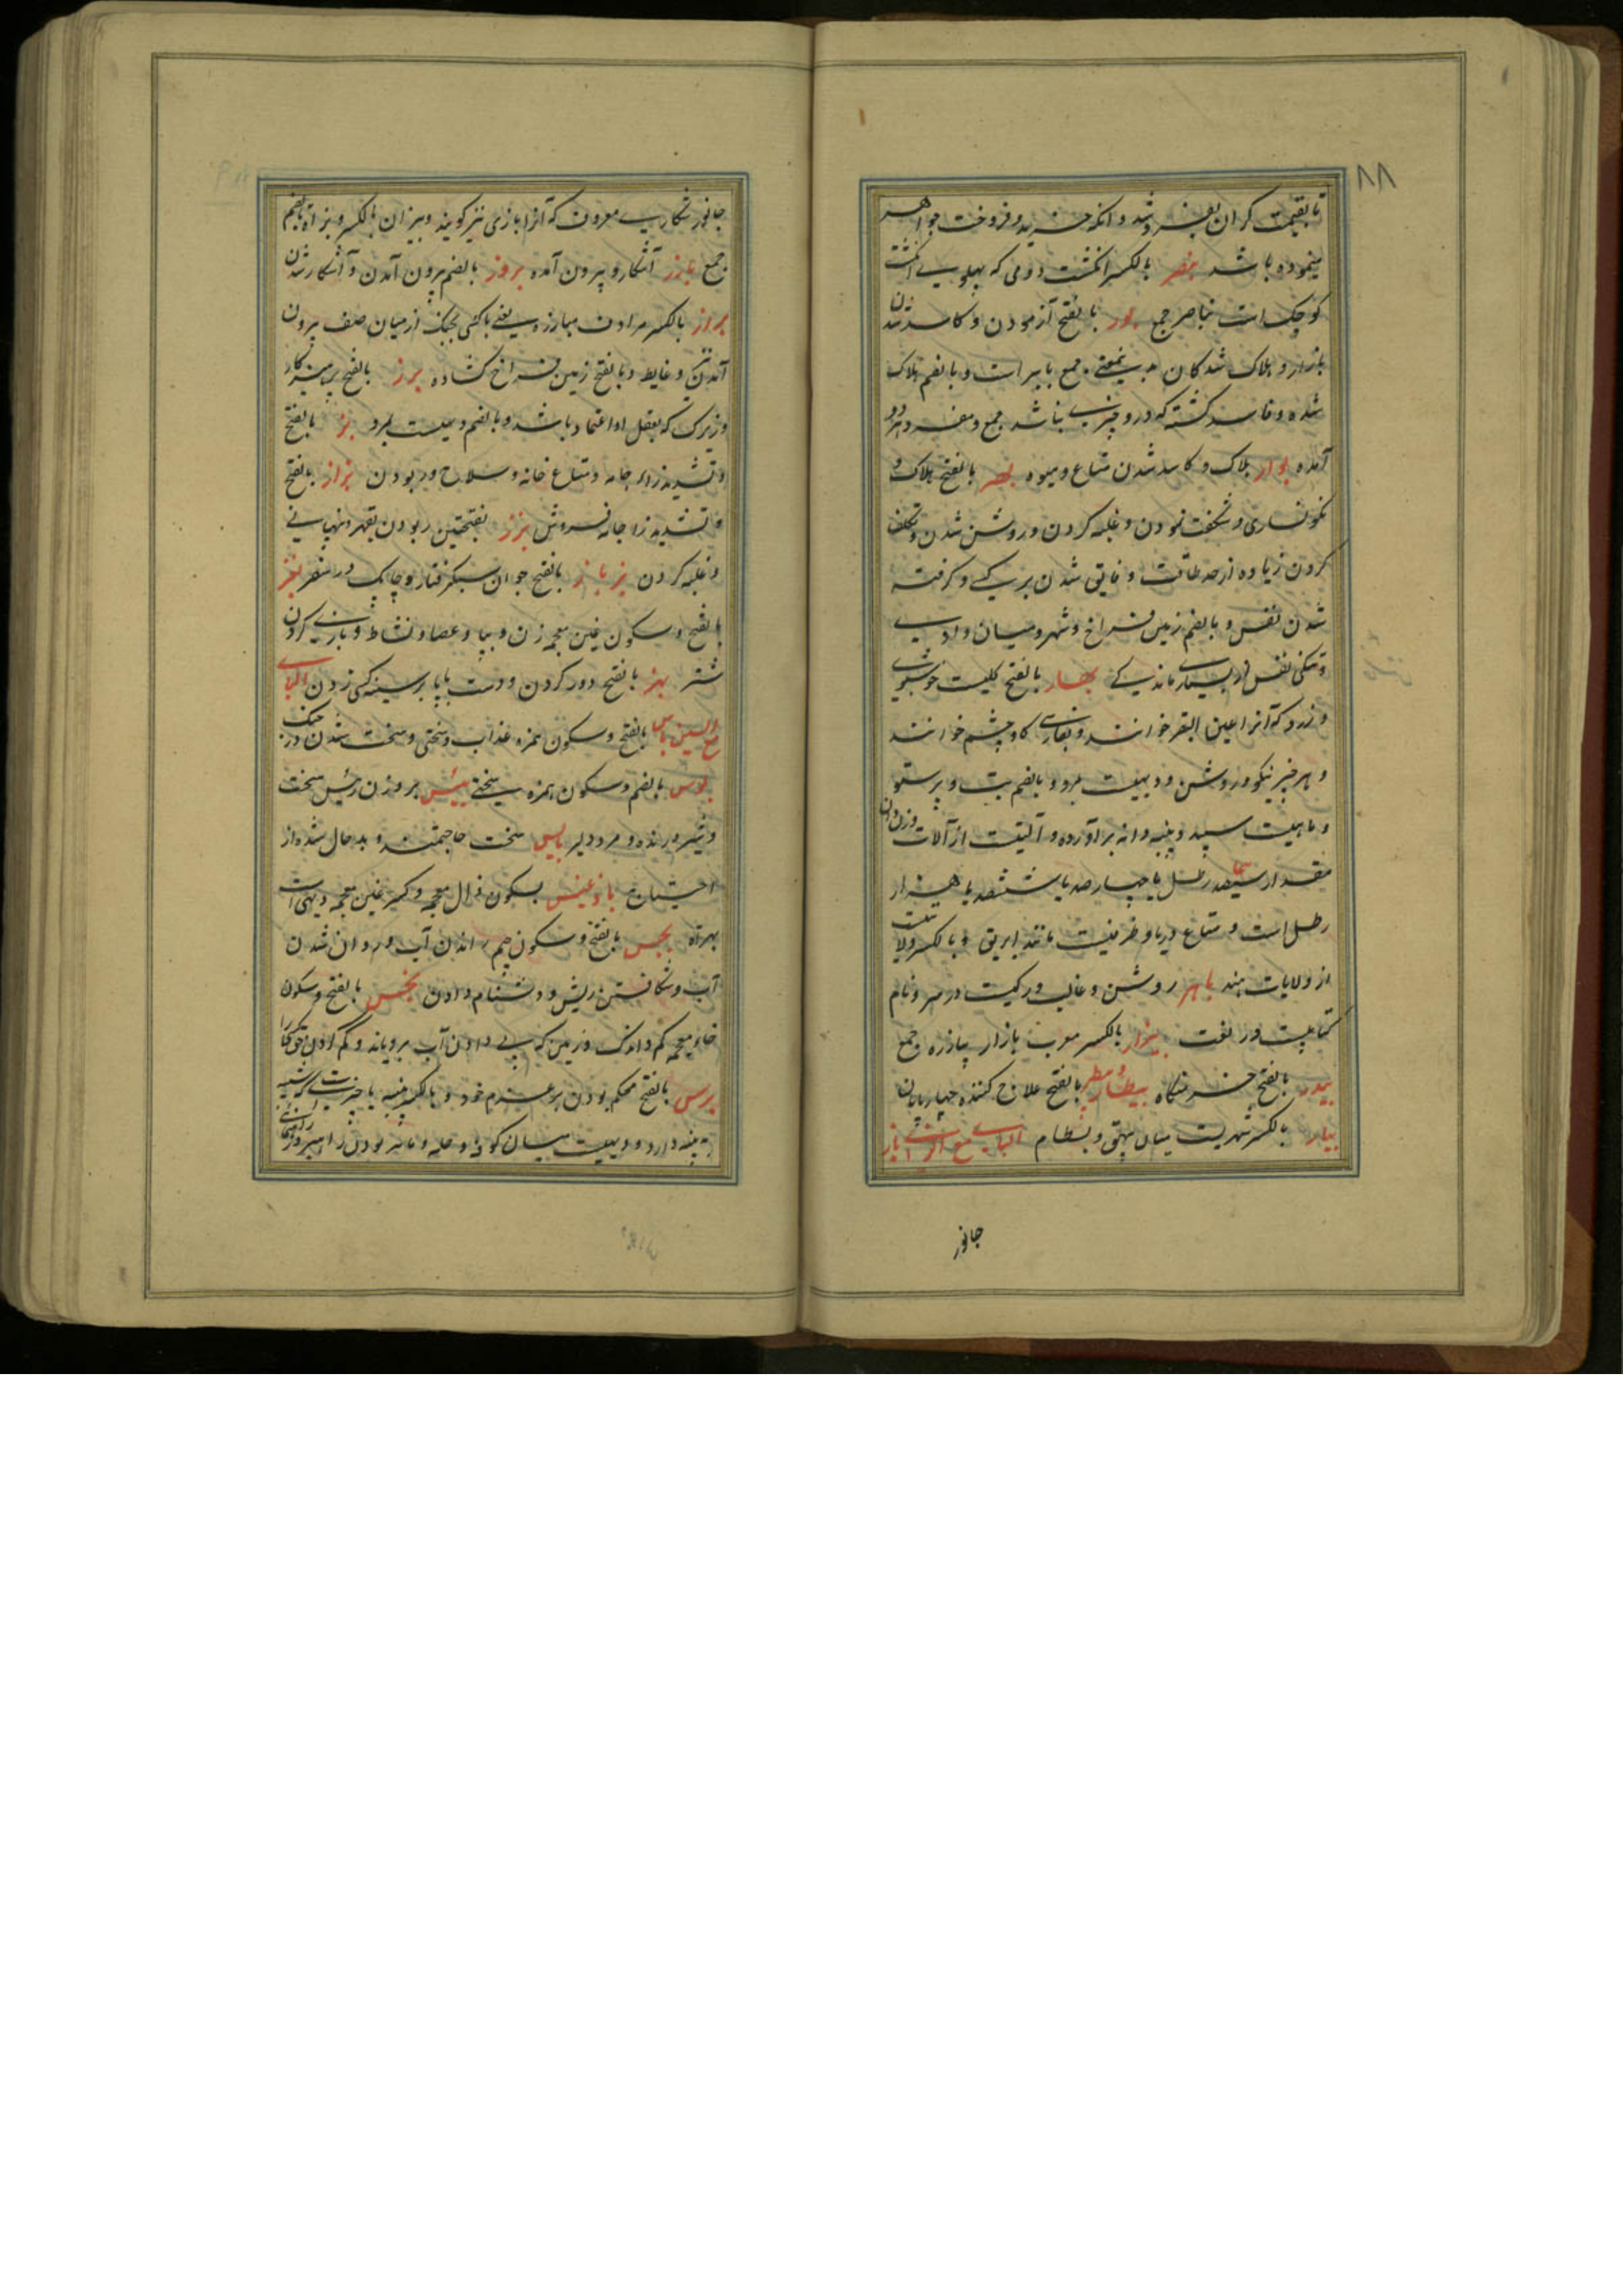 ۸۸
تا بقیمت کران بفروشد و انکه خرید و فروخت جواهر
مینموده باشد بنصر بالکسر انکشت دومی که پهلوی انکشت
کوچک است بناصر جمع بور بالفتح آزمودن و کاسد شدن
بازار و هلاک شدکان بدینمعنی جمع بایر است و بالضم هلاک
شده و فاسد کشته که درو چیزی نباشد جمع و مفرد هر دو
آمده بوار هلاک و کاسد شدن متاع و میوه بهر بالفتح هلاک و
نکونساری و شکفت نمودن و غلبه کردن و روشن شدن و تکلف
کردن زیاده از حد طاقت و فایق شدن بر کسی و کرفته
شدن نفس و بالضم زمین فراخ و شهر و میان وادی
و تنکی نفس از بسیار ماندگی بهار بالفتح کلیست خوشبوی
و زرد که آنرا عین البقر خوانند و بفارسی کاوچشم خوانند
و هر چیز نیکو و روشن و دهیست بمرو و بالضم بت و پرستو
و ماهیست سپید و پنبه دانه برآورده و آلتیست از آلات وزن و آن
مقدار سیصد رطل یا چهارصد یا ششصد یا هزار
رطل است و متاع دریا و ظرفیست مانند ابریق و بالکسر ولایتست
از ولایات هند باهر روشن و غالب و رکیست در سر و نام
کتابیست در لغت بیزار بالکسر معرب بازار بیازره جمع
بیدر بالفتح خرمنکاه بیطار و بیطر بالفتح علاج کننده چهارپایان
بیار بالکسر شهریست میان بیهق و بسطام الباء مع الزاء باز
جانور
جانور شکاری معروف که آنرا بازی نیز کویند و بیزان بالکسر و بزاة بالضم
جمع بارز آشکار و بیرون آمده بروز بالضم بیرون آمدن و آشکار شدن
براز بالکسر مرادف مبارزه یعنی با کسی بجنک از میان صف بیرون
آمدن و غایط و بالفتح زمین فراخ کشاده برز بالفتح پرهیزکار
و زیرک که بعقل او اعتماد باشد و بالضم دهیست بمرو بز بالفتح
و تشدید زاء جامه و متاع خانه و سلاح و ربودن بزاز بالفتح
و تشدید زا جامه فروش بزز بفتحتین ربودن بقهر و نهیانی
و غلبه کردن بزباز بالفتح جوان سبک رفتار و چابک در سفر بغز
بالفتح و سکون غین معجمه زدن و بپا و عصا و نشاط و بازی کردن
شتر بهز بالفتح دور کردن و دست یا پا بر سینه کسی زدن الباء
مع السین باس بالفتح و سکون همزه عذاب و سختی و سخت شدن در جنک
بوس بالضم و سکون همزه سختی بئیس بر وزن رئیس سخت
و شیر درنده و مرد دلیر بایس سخت حاجتمند و بدحال شده از
احتیاج بادغیس بسکون ذال معجمه و کسر غین معجمه دیهی است
بهراة بجس بالفتح و سکون جیم راندن آب و روان شدن
آب و شکافتن ریش و دشنام دادن بخس بالفتح و سکون
خاء معجمه کم و اندک و زمین که بی دادن آب برویاند و کم کردن حق کسی را
برس بالفتح محکم بودن بر عزم خود و بالکسر پنبه یا چیزیست که شبیه
به پنبه دارد و دهیست میان کوفه و حله و ماهر بودن راهبر در راه‌نمائی